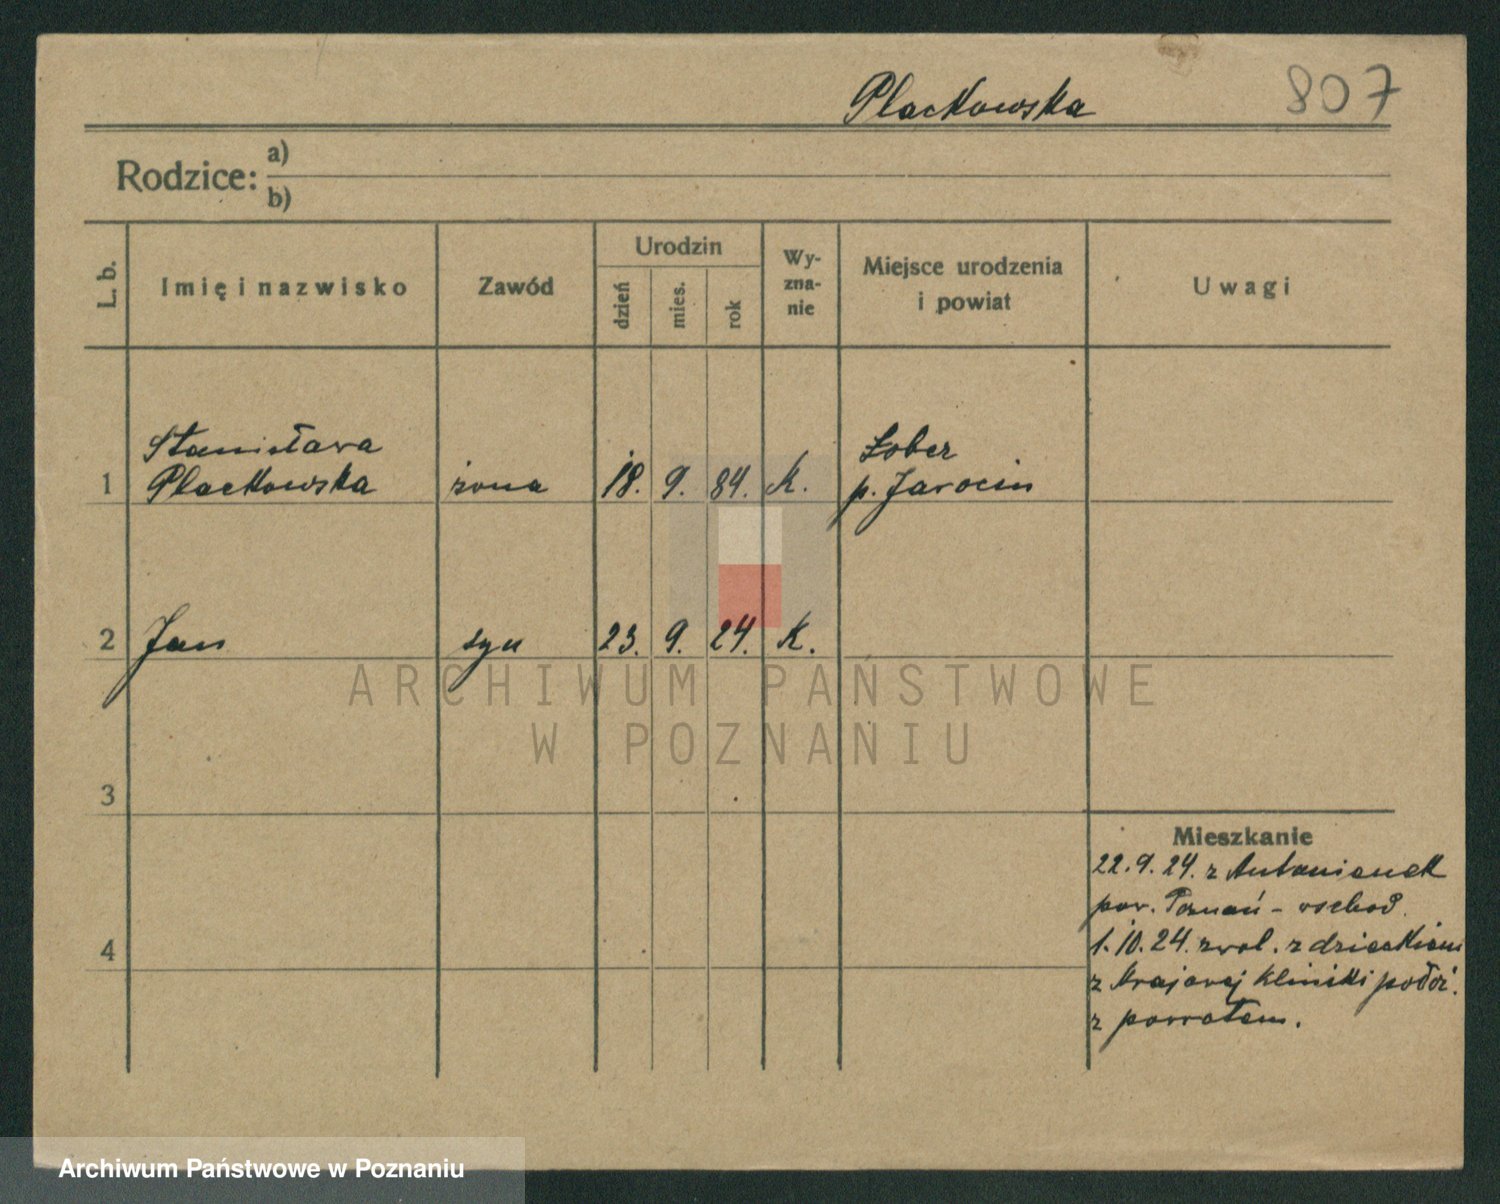 Plackowska
807
Rodzice:
a)
b)
L. b.
Imię i nazwisko
Zawód
Urodzin
dzień
mies.
rok
Wy-
zna-
nie
Miejsce urodzenia
i powiat
Uwagi
Stanisława
Plackowska
1
żona
18. 9. 84. K.
Łober
p. Jarocin
2 Jan syn 23. 9. 24. K.
ARCHIWUM PAŃSTWOWE
W POZNANIU
3
4
Mieszkanie
22.9.24. z Antoninek
pow. Poznań - wschod.
1.10.24. zwol. z dzieckiem
z Krajowej kliniki położ.
z powrotem.
Archiwum Państwowe w Poznaniu